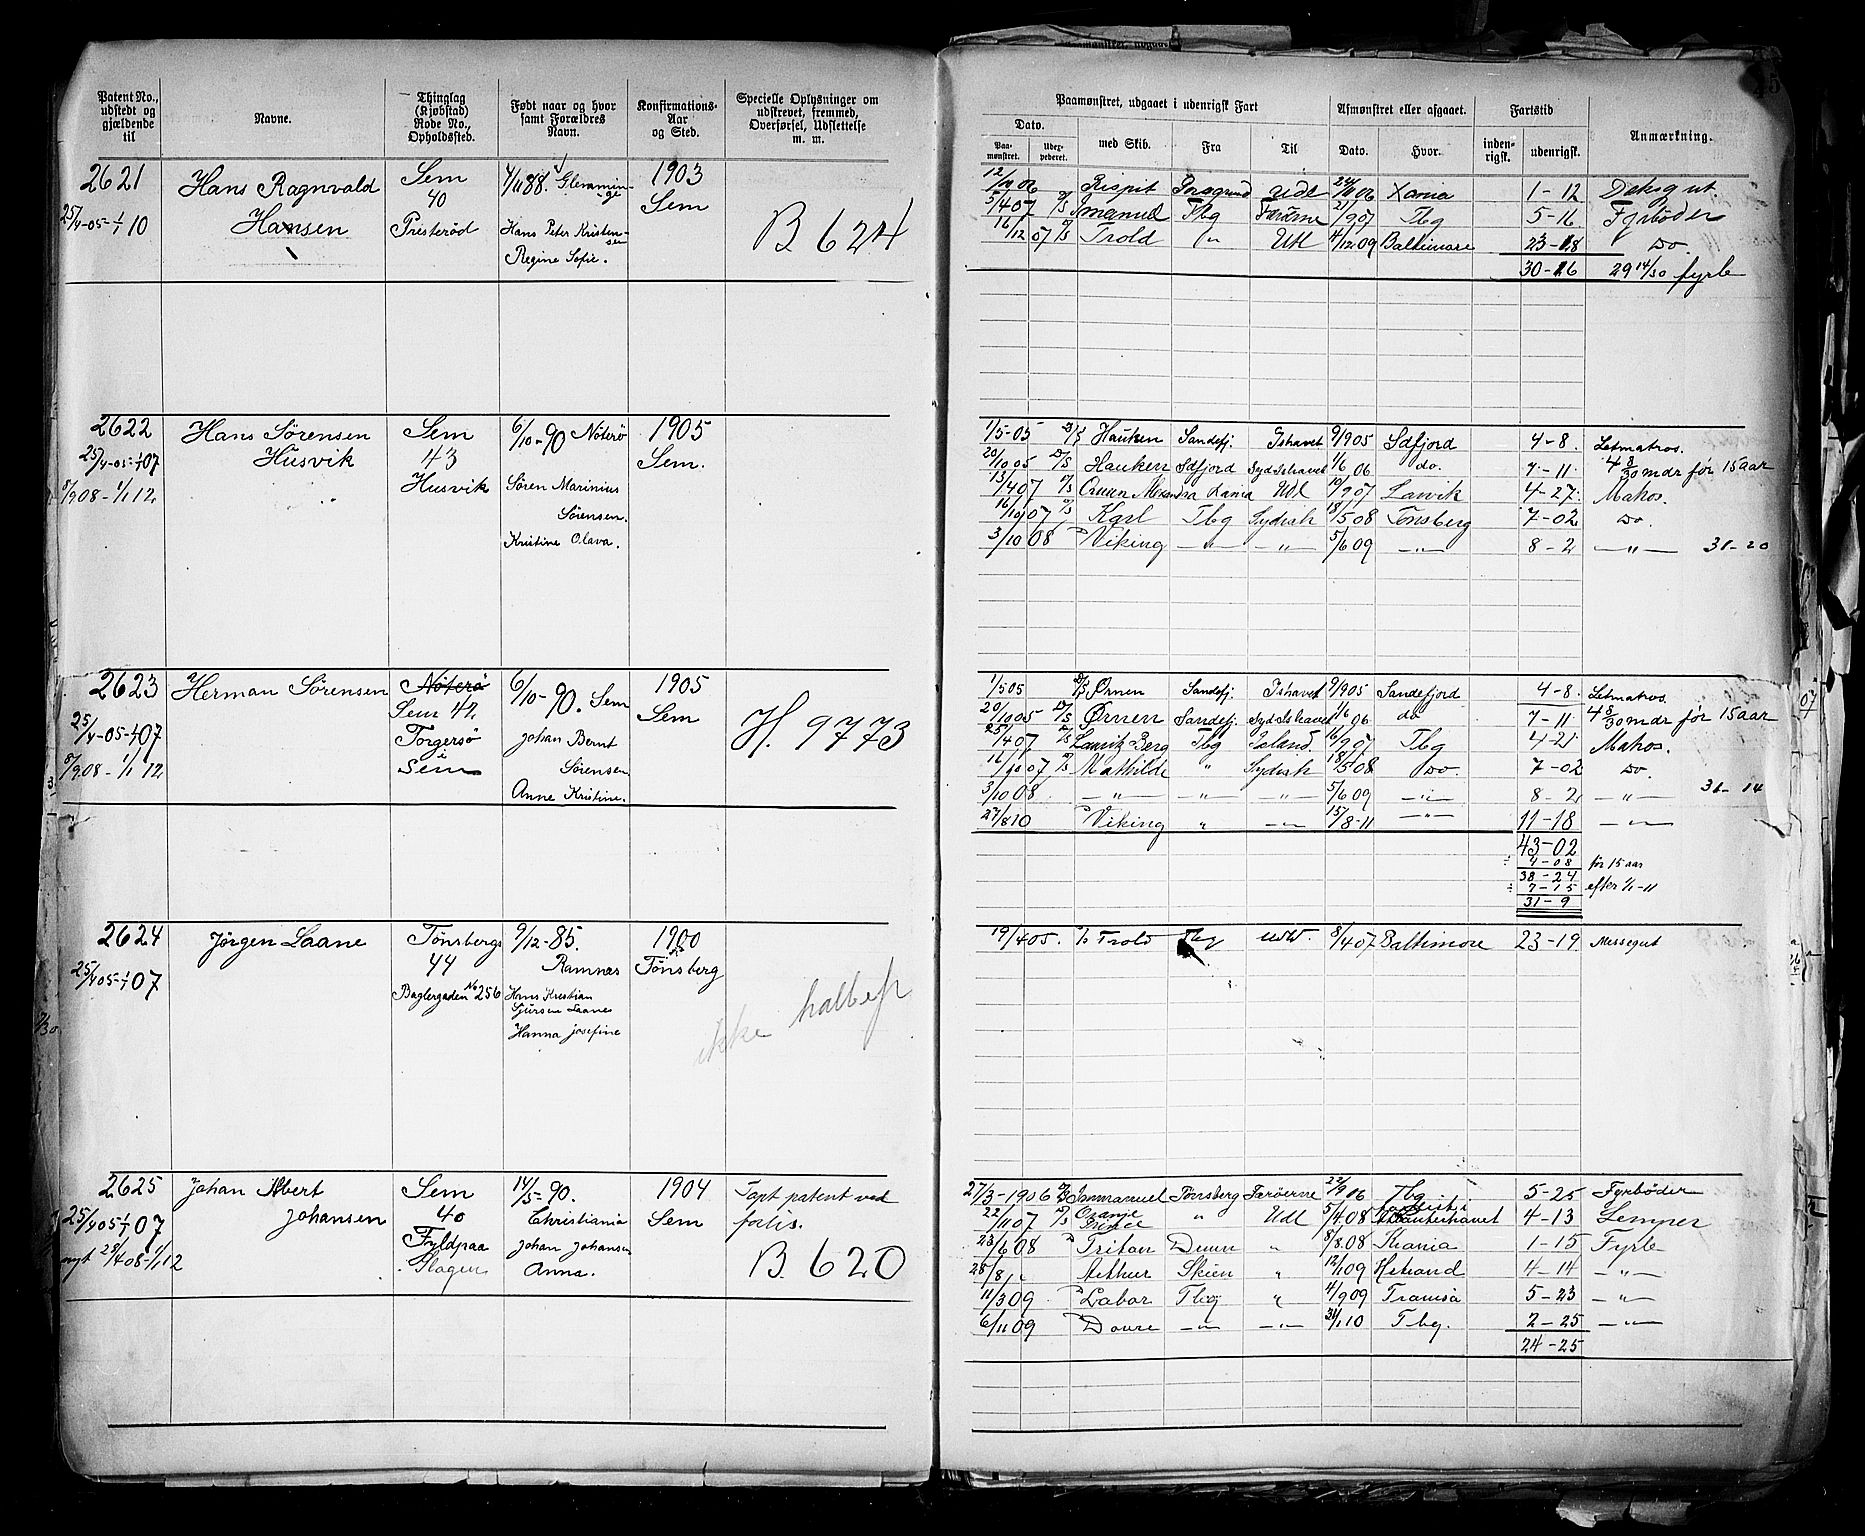 Patent No., udstedt og gjældende til
Navne.
Thinglag (Kjøbstad) Rode No., Opholdssted.
Født naar og hvor samt Forældres Navn.
Konfirmations- Aar og Sted.
Specielle Oplysninger om udstrevet, fremmed, Overførsel, Udslettelse m. m.
Paamønstret, udgaaet i udenrigsk Fart
Afmønstret eller afgaaet.
Fartstid
Anmærkning.
Dato.
Paa- mønstret.
med Skib.
Fra
Til
Dato.
Hvor.
inden- rigsk.
udenrigsk.
2621
25/4-05-1/1 10
Hans Ragnvald
Hansen
Sem
40
Presterød
Hans Peter Kristen-
sen
Regine Sofie.
1903
Sem
B 624
Respit Porsgrund Udl Xania 1-12 Daksgut
5/4 07 Imanuel Tbg Færøerne 21/9 07 Tbg 5-16 Fyrbøder
16/12 07 Trold Utl 4/12 09 Baltimore 23-18 Do.
30-16 29 14/30 fyrb
2622
25/4-05-1/1 07
8/9 08-1/1 12
Hans Sørensen
Husvik
Sem
43
Husvik
6/10-90 Nøterø
Søren Marinius
Sørensen.
Kristine Olava.
1905
Sem.
1/5-05 Hauken Sandefj. Ishavet 9/9 05 Sdfjord 4-8. Letmatros.
20/10 05 Hauken Sdfjord Syd Ishavet 1/6 06 do. 7-11. 4 8/30 mdr før 15 aar
13/4 07 Ornen Xania Udl 10/9 07 Larvik 4-27. Matros.
16/10 07 Karl Tbg Sydish 18/5 08 Tønsberg 7-02 Do.
3/10 08 Viking -"- -"- 5/6 09 -"- 8-2 -"- 31-20
2623
25/4-05-1/1 07
8/9 08-1/1 12
Herman Sørensen
Nøterø
Sem 42
Torgersø
i
Sem
6/10-90. Sem
Johan Bernt
Sørensen
Anne Kristine.
1905
Sem
H. 9773
1/5 05 Ørnen Sandefj. Ishavet 9/9 05 Sandefjord 4-8. Letmatros.
20/10 05 Ørnen Sandefj. Syd Ishavet 1/6 06 do 7-11 4 8/30 mdr før 15 aar
25/4 07 Lauritz Berg Tbg Island. 16/9 07 Tbg 4-21 Matros.
16/10 07 Mathilde " Sydish 18/5 08 Do. 7-02 Do.
3/10 08 -"- -"- -"- 5/6 09 -"- 8-2 -"- 31-14
27/8 10 Viking " -"- 15/8-11 -"- 11-18 -"-
43-02
4-08 før 15 aar
38-24
7-15 efter 1/1-11
31-9
2624
25/4 05-1/1 07
Jørgen Laane
Tønsberg
44
Baglergaden No 256
9/12-85.
Ramnes
Hans Kristian
Laane
Hanna Josefine
1900
Tønsberg
ikke
19/4 05. Trold Tbg Udl. 8/4 07 Baltimore 23-19. Messegut
2625
25/4 05 1/1 07
nyt 29/4 08-1/1 12
Johan Albert
Johansen
Sem
40
Fyldpaa
Slagen
14/5-90.
Christiania
Johan Johansen
Anna.
1904
Sem
Tapt patent ved
forlis.
B. 620
27/3-1906 Immanuel Tønsberg Færøerne 22/9 06 Tbg 5-25 Fyrbøder
22/11 07 Oranje Prince " Udl 5/4 08 Atlanterhavet 4-13 Lemper
23/6 08 Tritan " 8/8 08 Krania 1-15 Fyrb
28/8 Arthur Skien " 12/1 09 4-14 -"-
11/3 09 Labor Tbg " 4/9 09 Tromsø 5-23 -"-
6/11 09 Dovre -"- -"- 31/1 10 Tbg. 2-25 -"-
24-25